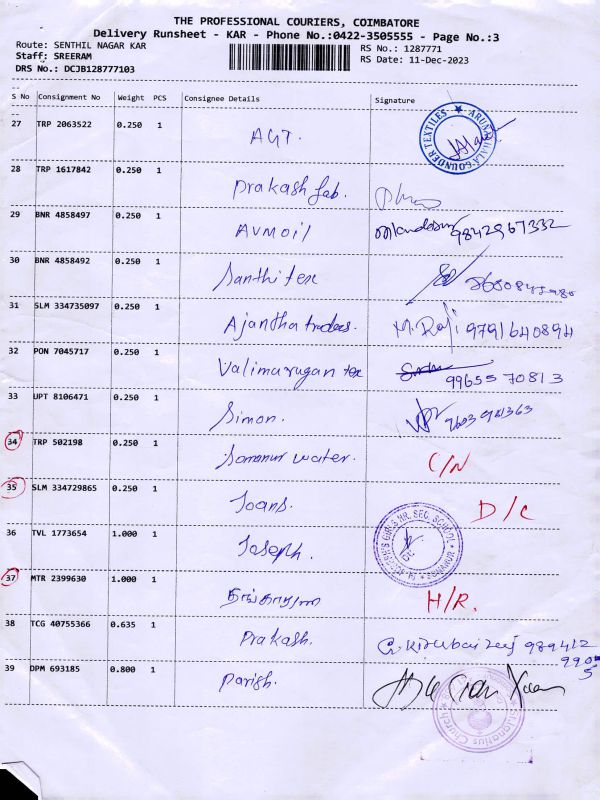 THE PROFESSIONAL COURIERS, COIMBATORE
Delivery Runsheet - KAR - Phone No.:0422-3505555 - Page No.:3
Route: SENTHIL NAGAR KAR
RS No.: 1287771
Staff: SREERAM
RS Date: 11-Dec-2023
DRS No.: DCJB128777103
S No Consignment No Weight PCS Consignee Details Signature
27 TRP 2063522 0.250 1 AGT. ARUNACHALA GOUNDER TEXTILES
28 TRP 1617842 0.250 1 Prakash fab.
29 BNR 4858497 0.250 1 AVMOil 9842967332
30 BNR 4858492 0.250 1 Santhi tex
31 SLM 334735097 0.250 1 Ajantha traders. M. Raji 9791640894
32 PON 7045717 0.250 1 Valimurugan tex 9965570813
33 UPT 8106471 0.250 1 Simon.
34 TRP 502198 0.250 1 water. C/N
35 SLM 334729865 0.250 1 Joans. D/C
36 TVL 1773654 1.000 1 Joseph. GIRLS HR. SEC. SCHOOL
37 MTR 2399630 1.000 1 H/R.
38 TCG 40755366 0.635 1 Prakash. 989412
990
5
39 DPM 693185 0.800 1 Parish. Ignatius Church